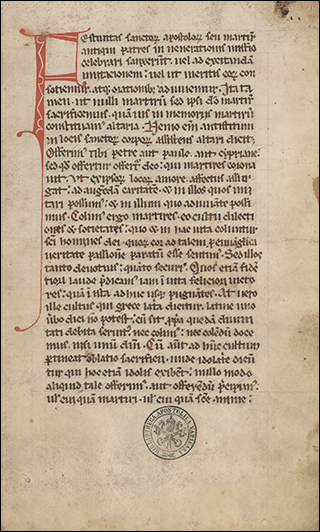 Festiuitas sanctoꝝ apostoloꝝ seu martirū
antiqui patres in uenerationis misterio
celebrari sanxerunt. uel ad excitandam
imitacionem: uel ut meritis eoꝝ con
sotiemur. atqꝫ orationibꝰ adiuuemur. Ita ta
men ut nulli martirū sed ipsi dō martirū
sacrificemus. quāuis in memoriis martirū
constituam altaria. Nemo enī antistitum
in locis sanctoꝝ corpoꝝ assistens altari dicit:
Offerimꝰ tibi petre aut paule. aut cypriane.
sed qd̄ offertur offert deo: qui martires corona
uit. Vt ex ipsoꝝ locoꝝ amore affectus
gat: ad augendā caritatē. ⁊ in illos quos imi
tari possumꝰ: ⁊ in illum quo adiuuāte possu
mus. Colimꝰ ergo martires eo cultu dilecti
onis ⁊ sotietatis: quo ⁊ in hac uita coluntur
sc̄i homines dei. quoꝝ cor ad talem ꝑ euuāgelica
ueritate passione paratū esse sentimꝰ. Sed illos
tanto deuotius: quāto securi. Quos etiā fide
tiori laude p̄dicam iam ī uita feliciori uicto
res: quā ī ista adhuc usqꝫ pugnātes. At uero
ille cultus qui grece latria dicitur. latine uno
uerbo dici nō potest: cū sit ꝓpria quedā diuini
tati debita seruitꝰ. nec colimꝰ: nec colēdū doce
mus nisi unū dm̄. Cū aut̄ ad hūc cultum
pertineat oblatio sacrificii. unde idolatie dicun
tur qui hoc etiā idolis exibent: nullo modo
aliquid tale offerimꝰ. aut offerēdū p̄cipimꝰ
uel cui quā martiri. uel cui quā sc̄e anime:
BIBLIOTHECA APOSTOLICA VATICANA